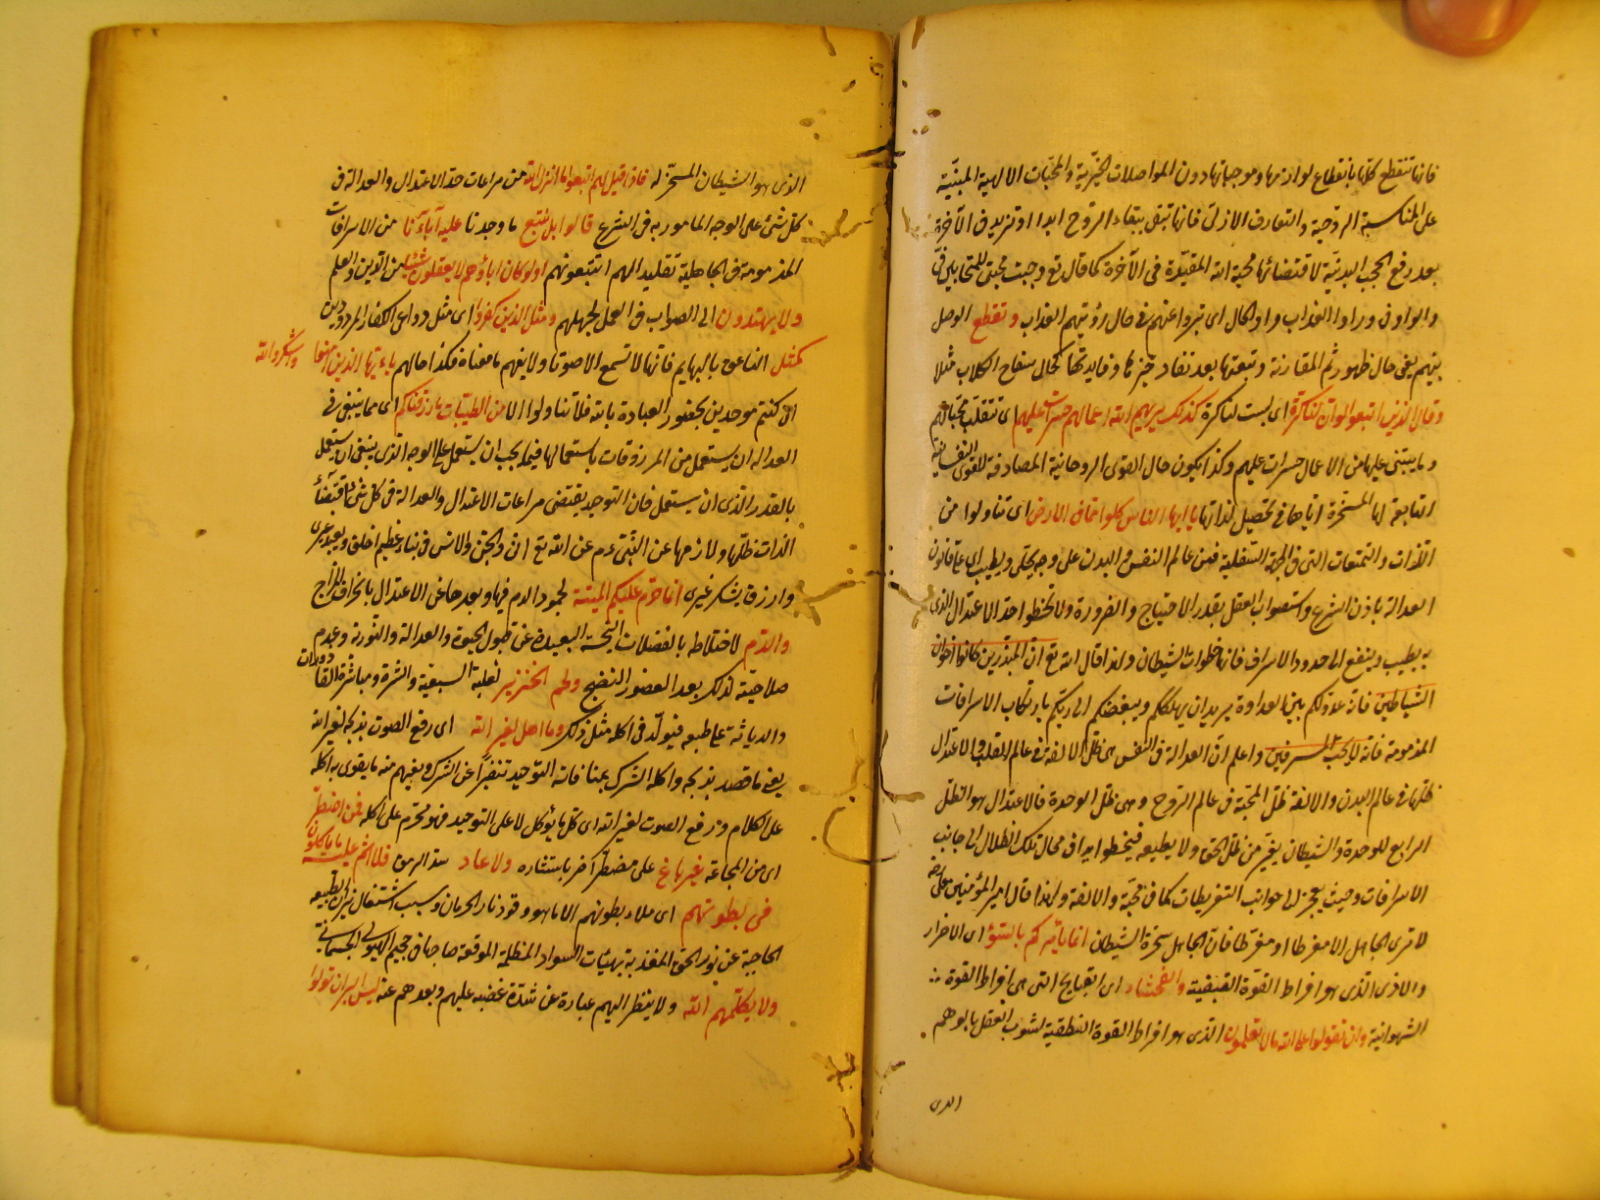 فانها تنقطع كلها بانقطاع لوازمها وموجباتها دون المواصلات الخيّرية والمحبّات الالهية المبنيّة
على المناسبة الروحية والتعارف الازلى فانها تبقى ببقاء الروح ابدا او تزيد فى الآخرة
بعد رفع الحجب البدنيّة لاقتضائها محبة الله المقيّدة فى الآخرة كما قال تع وجبت محبتى للمتحابين فىّ
والواو فى وراوا العذاب واو الحال اى تبرؤا عنهم فى حال رؤيتهم العذاب وتقطع الوصل
بينهم يعنى حال ظهور ثم المقارنة وتبعتها بعد نفاد خيرها وفايدتها كحال سفاح الكلاب مثلا
وقال الذين اتبعوا لو ان لنا كرة اى ليت لنا كرة كذلك يريهم الله اعمالهم حسرات عليهم اى تنقلب محبّاتهم
وما يبتنى عليها من الاعمال حسرات عليهم وكذا يكون حال القوى الروحانية المصادقة للقوى النفسانية
التابعة لها المسخرة اياها فى تحصيل لذاتها يا ايها الناس كلوا مما فى الارض اى تناولوا من
اللذات والتمتعات التى فى الجهة السفلية فمن عالم النفس والبدن على وجه يحلّ ويطيب اى على قانون
العدالة باذن الشرع واستصواب العقل بقدر الاحتياج والضرورة ولا تخطوا حد الاعتدال الذى
به يطيب وينفع الى حدود الاسراف فانها خطوات الشيطان ولهذا قال الله تع ان المبذرين كانوا اخوان
الشياطين فانه عدوّ لكم بيّن العداوة يريد ان يهلككم ويبغضكم الى ربكم بارتكاب الاسرافات
المذمومة فانه لا يحب المسرفين واعلم ان العدالة فى النفس هى ظل الالفة فى عالم القلب والاعتدال
ظلها فى عالم البدن والالفة ظل المحبّة فى عالم الروح وهى ظل الوحدة فالاعتدال هو الظل
الرابع للوحدة والشيطان يفرّ من ظل الحق ولا يطيقه فيخطو ابدا فى مجال تلك الظلال الى جانب
الاسرافات وحيث يعجز الى جوانب التفريطات كما فى المحبة والالفة ولهذا قال امير المؤمنين على رضه
لا ترى الجاهل الا مفرطا او مفرّطا فان الجاهل سخرة الشيطان انما يأمركم بالسّوء اى الاضرار
والاذى الذى هو افراط القوة الغضبية والفحشاء اى القبايح التى هى افراط القوة
الشهوانية وان تقولوا على الله ما لا تعلمون الذى هو افراط القوة النطقية لشوب العقل بالوهم
الذى
الذى هو الشيطان المسخّر له فاذا قيل لهم اتبعوا ما انزل الله من مراعات حدّ الاعتدال والعدالة فى
كل شئ على الوجه المامور به فى الشرع قالوا بل نتبع ما وجدنا عليه آباءنا من الاسرافات
المذمومة فى الجاهلية تقليدا لهم ايتبعونهم اولو كان اباؤهم لا يعقلون شيئا من الدين والعلم
ولا يهتدون الى الصواب فى العمل لجهلهم ومثل الذين كفروا اى مثل دواعى الكفار المردودين
كمثل الناعق بالبهايم فانها لا تسمع الا صوتا ولا يفهم ما معناه فكذا حالهم يا ايها الذين امنوا واشكروا لله
ان كنتم موحدين بخصوص العبادة بالله فلا تناولوا الا من الطيبات ما رزقناكم اى مما ينبغى فى
العدالة ان يستعمل من المرزوقات باستعمالها فيما يجب ان يستعمل على الوجه الذى ينبغى ان يستعمل
بالقدر الذى ان يستعمل فان التوحيد يقتضى مراعات الاعتدال والعدالة فى كل شئ
الذات ظلها ولازمها عن النّبى ءم عن الله تع انى والجن والانس فى نباء عظيم اخلق ويعبد غيرى
وارزق ويشكر غيرى انما حرّم عليكم الميتة لجمود الدم فيها وبعدها عن الاعتدال بانحراف المزاج
والدّم لاختلاطه بالفضلات النجسة البعيدة عن قبول الحيوة والعدالة والنورية وعدم
صلاحيته لذلك بعد القصور النضج ولحم الخنزير لغلبة السبعية والشره ومباشرة القاذورات
والدياثة على طبعه فيولد فى اكله مثل ذلك وما اهل لغير الله اى رفع الصوت بذبحه لغير الله
يعنى ما قصد بذبحه واكله الشرك بمنافاته التوحيد تنفّرا عن الشرك ويفهم منه ما يقوى به اكله
على الكلام ورفع الصوت لغير الله اى كل ما يؤكل لا على التوحيد فهو محرّم على آكله فمن اضطر
اى من المجاعة غير باغ على مضطر آخر باستئثاره ولا عاد سد الرمق فلا اثم عليه ما ياكلون
فى بطونهم اى ملاء بطونهم الا ما هو وقود نار الحرمان وسبب اشتعال نيران الطبيعة
الحاجبة عن نور الحق المعذبة بهيئات السواد المظلمة الموقعة صاحبها فى جحيم الهيولى الجسمانية
ولا يكلّمهم الله ولا ينظر اليهم عبارة عن شدّة غضبه عليهم وبعدهم عنه ليس البر ان تولوا